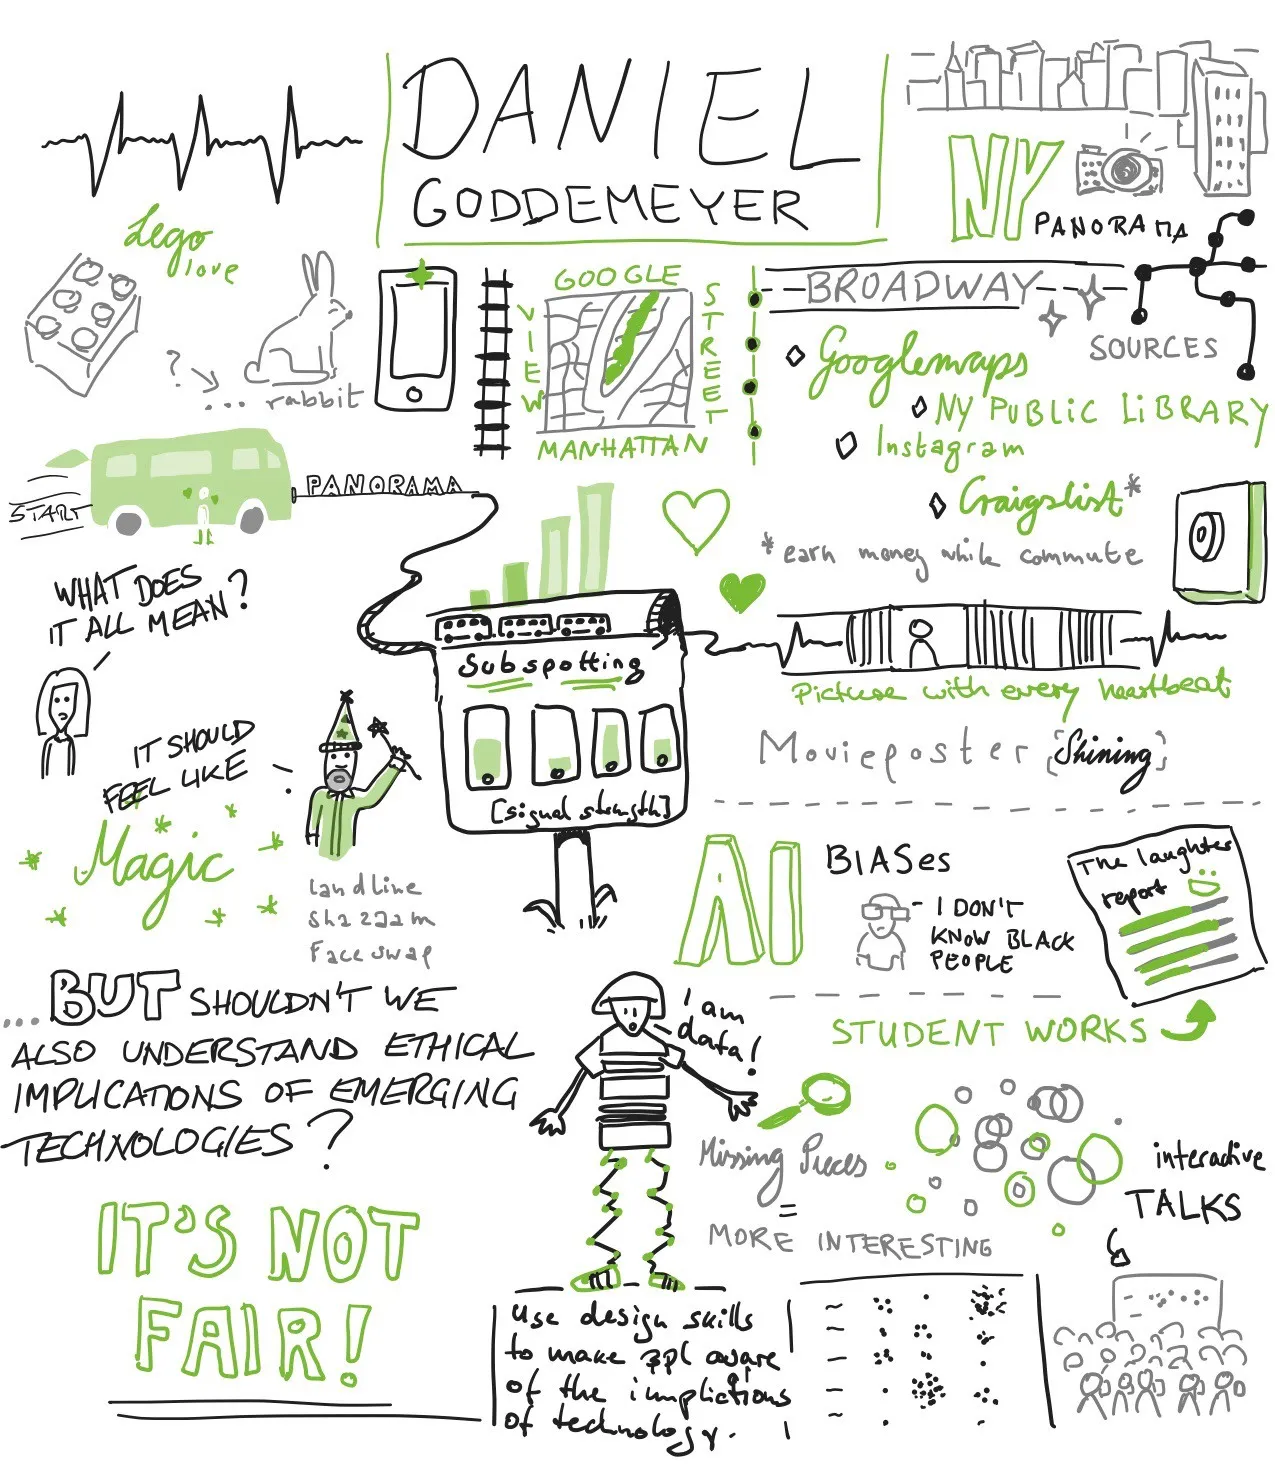 DANIEL
GODDEMEYER
NY
PANORAMA
Lego
love
?
... rabbit
GOOGLE
STREET
VIEW
MANHATTAN
BROADWAY
SOURCES
Googlemaps
NY PUBLIC LIBRARY
Instagram
Craigslist*
*earn money while commute
START
PANORAMA
WHAT DOES
IT ALL MEAN?
Subspotting
[signal strength]
Picture with every heartbeat
Movieposter [Shining]
IT SHOULD
FEEL LIKE
Magic
landline
Shazzam
Faceswap
AI
BIASes
- I DON'T
KNOW BLACK
PEOPLE
The laughter
report
STUDENT WORKS
... BUT SHOULDN'T WE
ALSO UNDERSTAND ETHICAL
IMPLICATIONS OF EMERGING
TECHNOLOGIES?
IT'S NOT
FAIR!
I am
data!
Missing Pieces
=
MORE INTERESTING
interactive
TALKS
Use design skills
to make ppl aware
of the implictions
of technology.